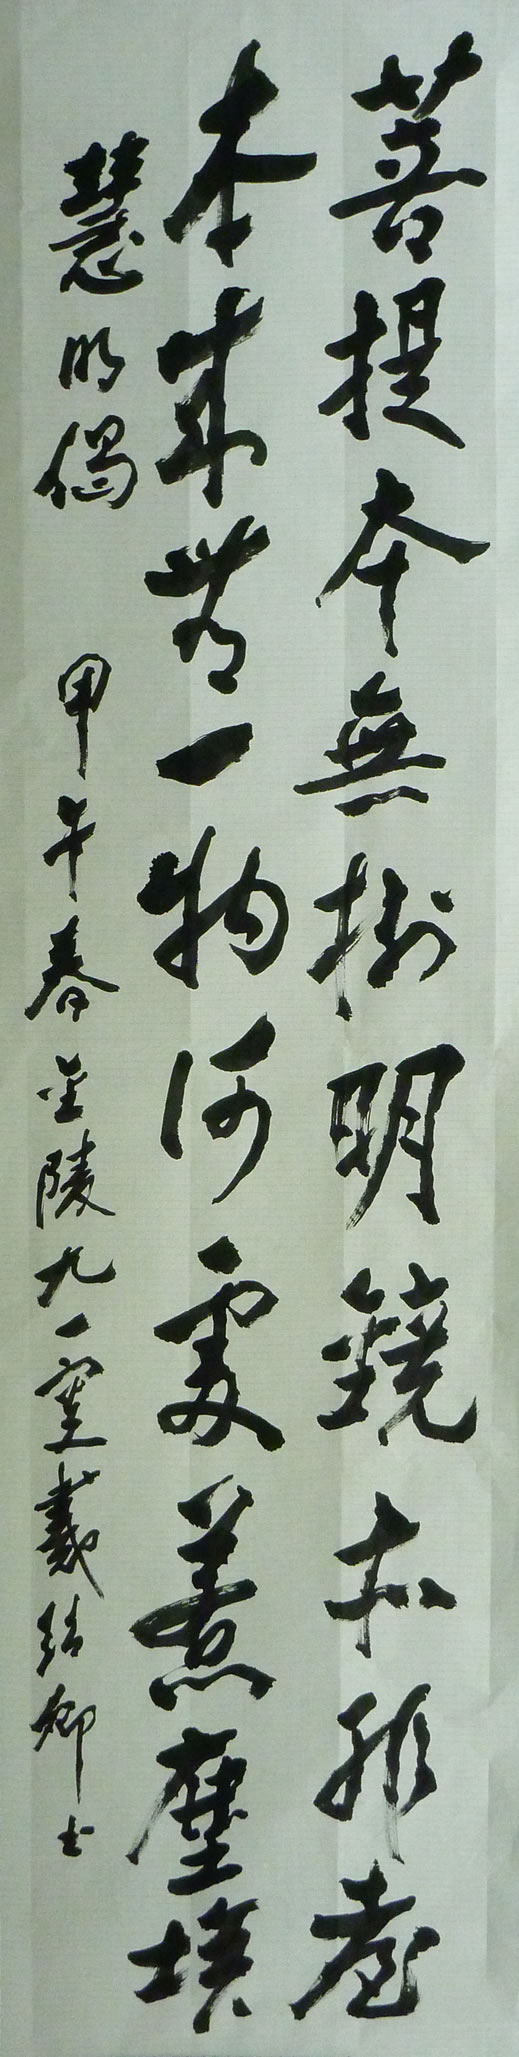 菩提本無樹明鏡亦非臺
本來無一物何處惹塵埃
慧明偈 甲午春金陵九一叟戴卿书